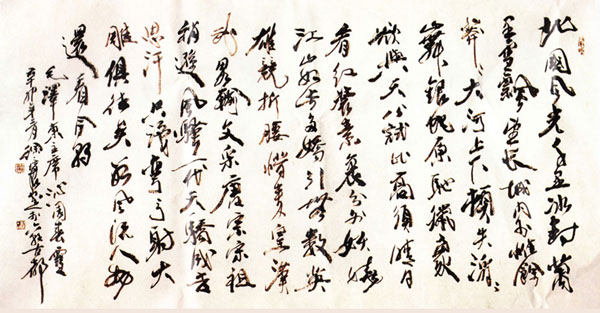 北國風光千里冰封萬
里雪飄望長城內外惟餘
莽莽大河上下頓失滔〻
山舞銀蛇原馳蠟象
欲與天公試比高須晴日
看紅裝素裹分外妖嬈
江山如此多嬌引無數英
雄競折腰惜秦皇漢
武略輸文采唐宗宋祖
稍遜風騷一代天驕成吉
思汗只識彎弓射大
雕俱往矣數風流人物
還看今朝
毛澤東主席沁園春雪
辛卯年 古都